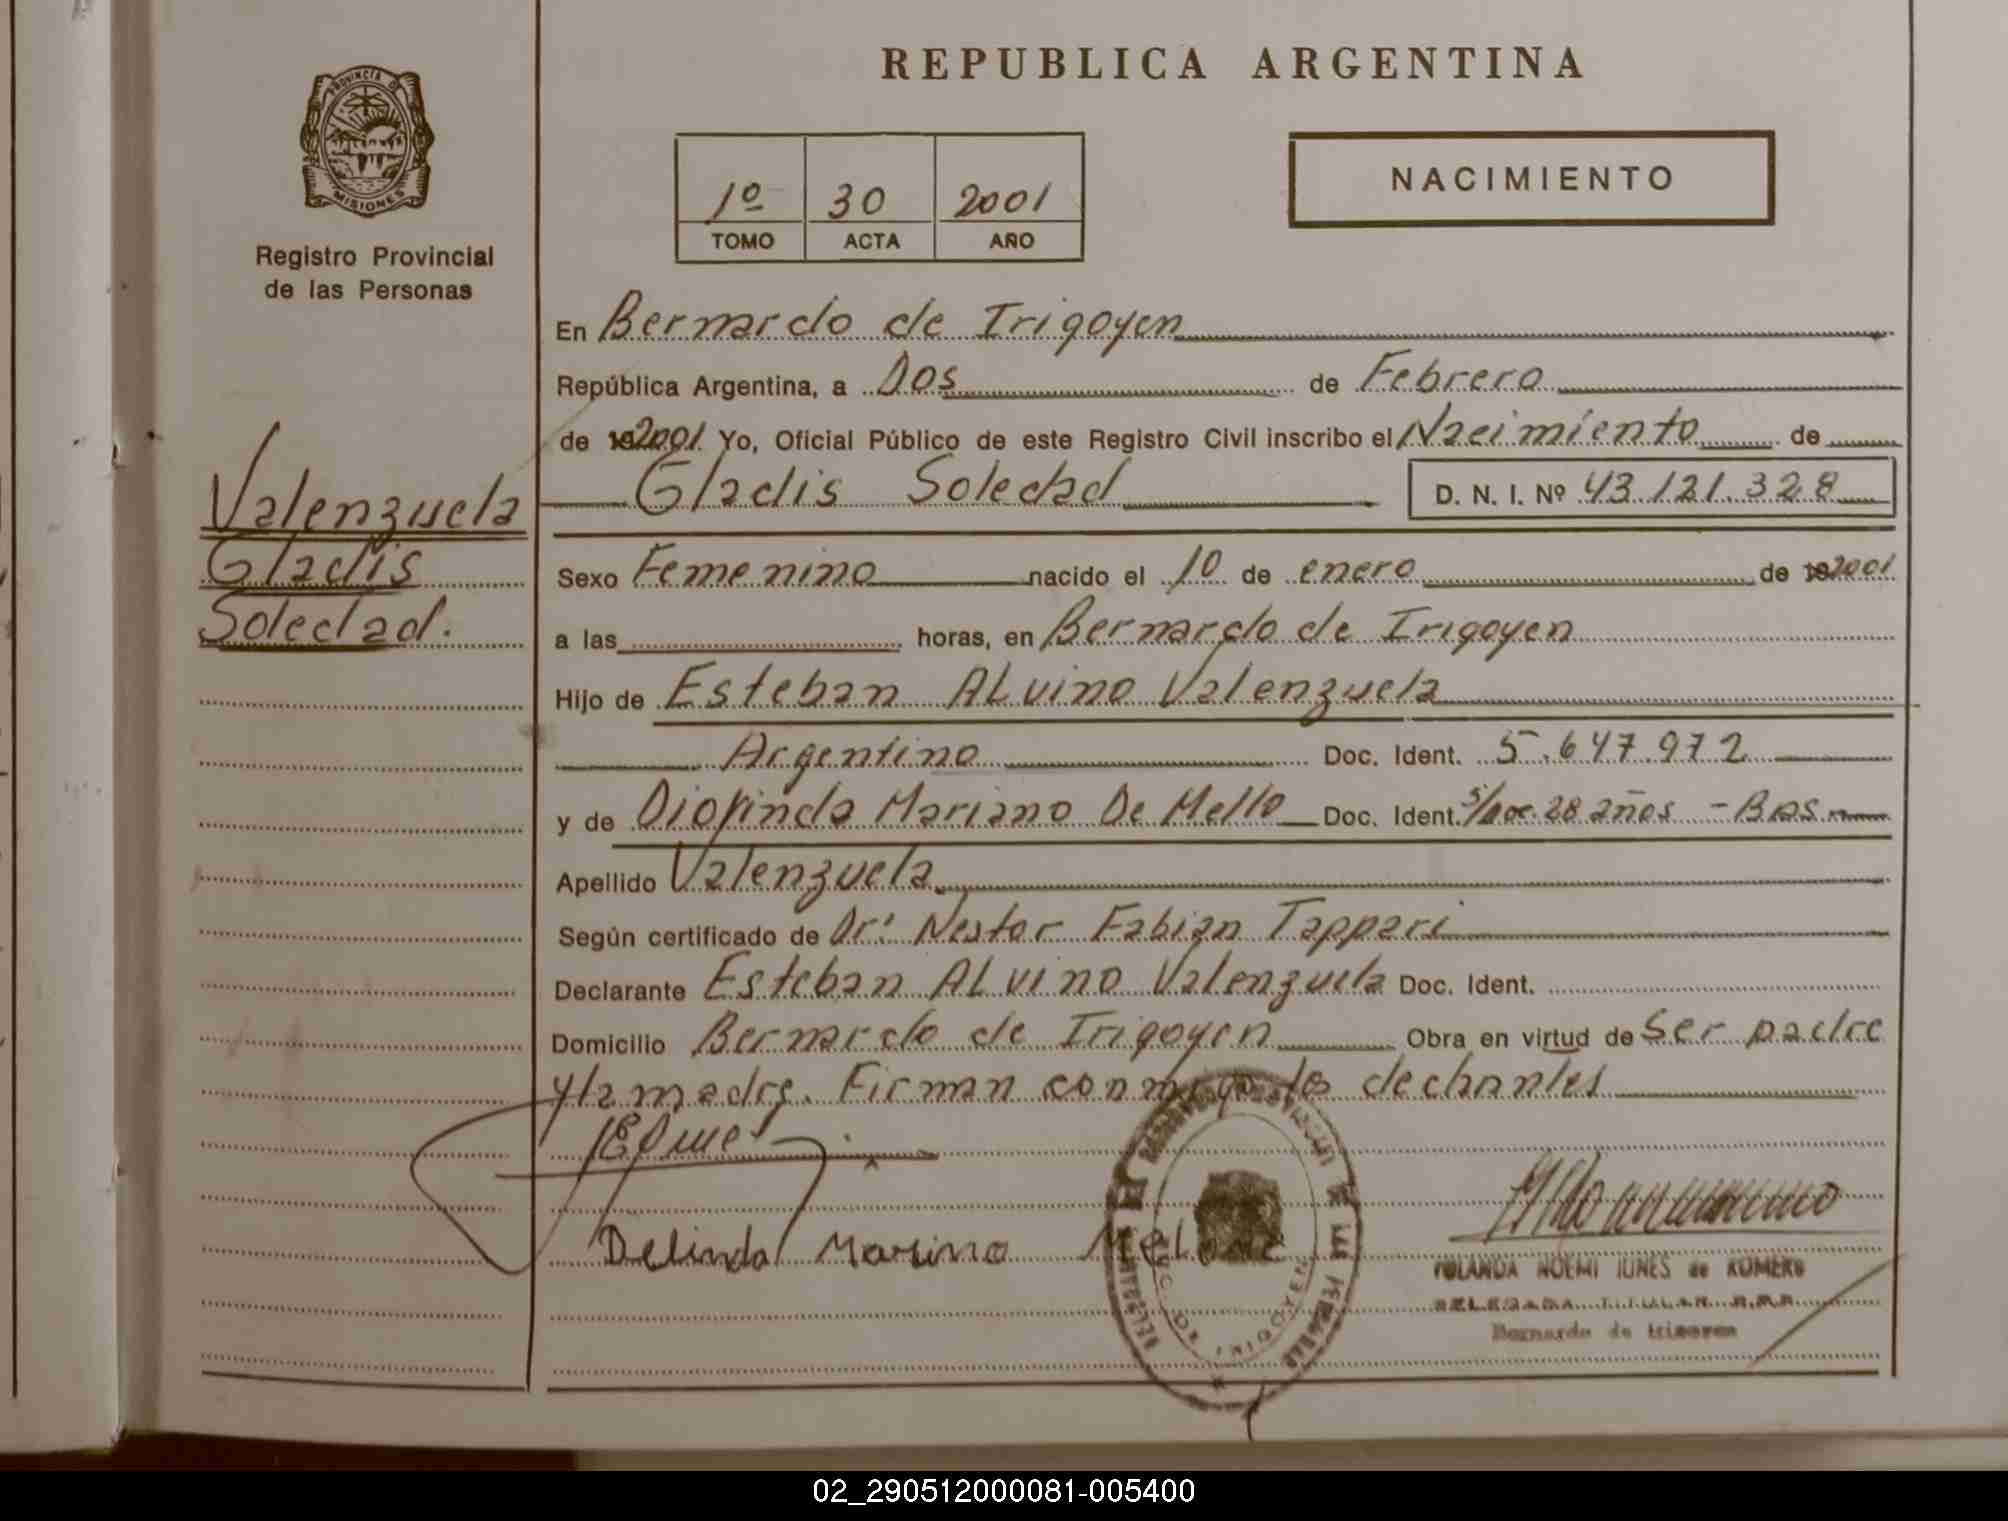 REPUBLICA ARGENTINA
PROVINCIA DE
MISIONES
Registro Provincial
de las Personas
1º 30 2001
TOMO ACTA AÑO
NACIMIENTO
Valenzuela
Gladis
Soledad.
En Bernardo de Irigoyen
República Argentina, a Dos de Febrero
de 192001 Yo, Oficial Público de este Registro Civil inscribo el Nacimiento de
Gladis Soledad D. N. I. Nº 43.121.328
Sexo Femenino nacido el 10 de enero de 192001
a las horas, en Bernardo de Irigoyen
Hijo de Esteban ALvino Valenzuela
Argentino Doc. Ident. 5.647.972
y de Mariano De Mello Doc. Ident. s/Doc. 28 años - Bras
Apellido Valenzuela
Según certificado de Dr: Nestor Fabian Tappari
Declarante Esteban ALvino Valenzuela Doc. Ident.
Domicilio Bernardo de Irigoyen Obra en virtud de Ser padre
y la madre. Firman conmigo los
Delinda Marino
YOLANDA NOEMI IUNES de ROMERO
DELEGADA TITULAR R.P.P.
Bernardo de Irigoyen
02_290512000081-005400